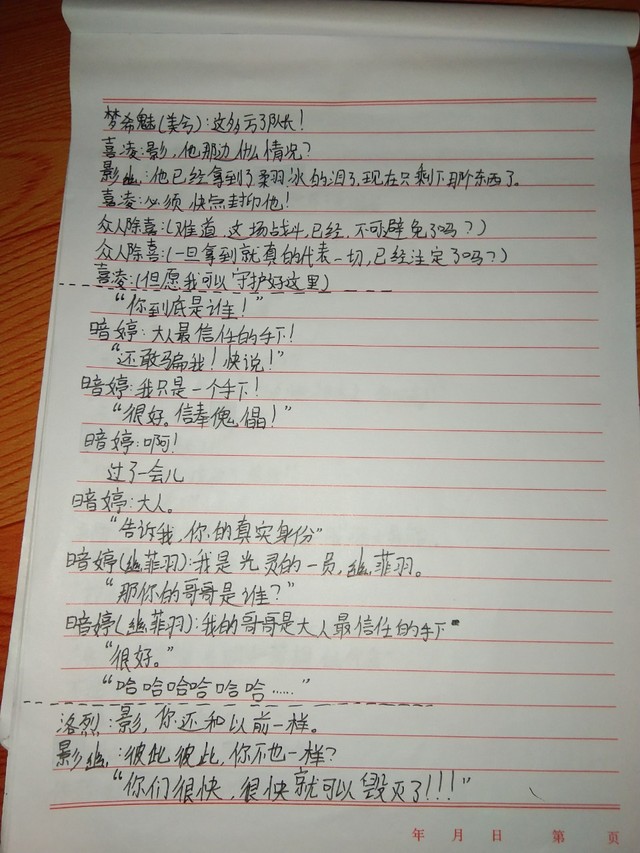 梦希魅(美兮):这多亏了队长!
喜凌:影,他那边什么情况?
影幽:他已经拿到了柔羽冰的泪了,现在只剩下那个东西了。
喜凌:必须快点封印他!
众人除喜:(难道,这场战斗,已经,不可避免了吗?)
众人除喜:(一旦拿到就真的代表一切,已经注定了吗?)
喜凌:(但愿我可以守护好这里)
“你到底是谁!”
暗婷:大人最信任的手下!
“还敢骗我!快说!”
暗婷:我只是一个手下!
“很好。信奉傀儡!”
暗婷:啊!
过了一会儿
暗婷:大人。
“告诉我,你的真实身份”
暗婷(幽菲羽):我是光灵的一员,幽菲羽。
“那你的哥哥是谁?”
暗婷(幽菲羽):我的哥哥是大人最信任的手下。
“很好。”
“哈哈哈哈哈哈……”
洛烈:影,你还和以前一样。
影幽:彼此彼此,你不也一样?
“你们很快,很快就可以毁灭了!!!”
年 月 日 第 页